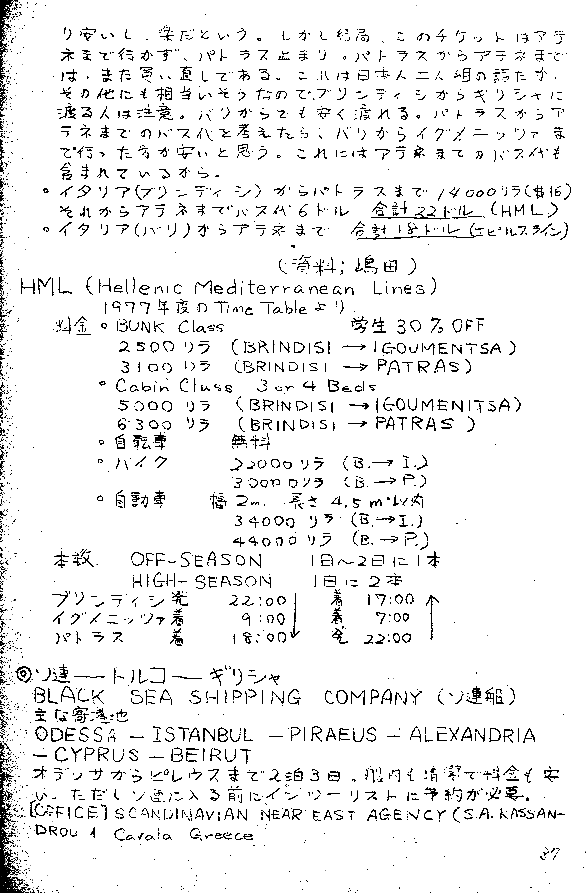 り安いし、楽だという。しかし結局、このチケットはアテ
ネまで行かず、パトラス止まり。パトラスからアテネまで
は、また買い直しである。これは日本人二人組の話だが、
その他にも相当いそうなので、ブリンディシからギリシャに
渡る人は注意。バリからでも安く渡れる。パトラスからア
テネまでのバス代を考えたら、バリからイグメニッツァま
で行った方が安いと思う。これにはアテネまでのバス代も
含まれているから。
◦イタリア(ブリンディシ)からパトラスまで 14000リラ($16)
それからアテネまでバス代6ドル 合計22ドル (HML)
◦イタリア(バリ)からアテネまで 合計18ドル(エピルスライン)
(資料;嶋田)
HML (Hellenic Mediterranean Lines)
1977年度のTime Tableより
料金 ◦ BUNK Class 学生30%OFF
2500リラ (BRINDISI → IGOUMENTSA)
3100リラ (BRINDISI → PATRAS)
◦ Cabin Class 3 or 4 Beds
5000リラ (BRINDISI → IGOUMENITSA)
6300リラ (BRINDISI → PATRAS)
◦ 自転車 無料
◦ バイク 22000リラ (B.→I.)
30000リラ (B.→P.)
◦ 自動車 幅2m. 長さ4.5m以内
34000リラ (B.→I.)
44000リラ (B.→P.)
本数 OFF-SEASON 1日~2日に1本
HIGH-SEASON 1日に2本
ブリンディシ発 22:00 着 17:00
イグメニッツァ着 9:00 着 7:00
パトラス 着 18:00↓ 発 22:00 ↑
◎ソ連―トルコ―ギリシャ
BLACK SEA SHIPPING COMPANY (ソ連船)
主な寄港地
ODESSA — ISTANBUL — PIRAEUS — ALEXANDRIA
— CYPRUS — BEIRUT
オデッサからピレウスまで2泊3日。船内も清潔で料金も安
い。ただしソ連に入る前にインツーリストに予約が必要。
[OFFICE] SCANDINAVIAN NEAR EAST AGENCY (S.A. KASSAN-
DROU 1 Cavala Greece
37